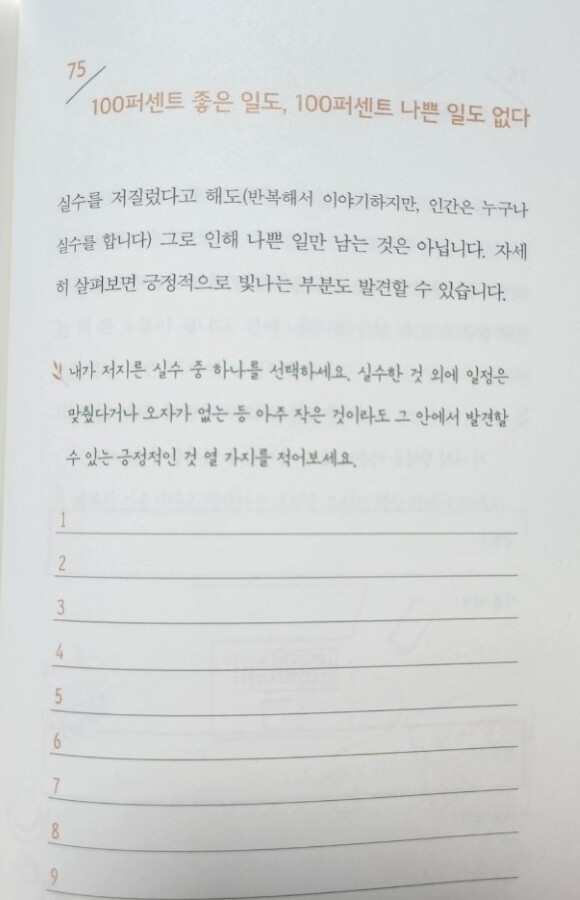 75
100퍼센트 좋은 일도, 100퍼센트 나쁜 일도 없다
실수를 저질렀다고 해도(반복해서 이야기하지만, 인간은 누구나
실수를 합니다) 그로 인해 나쁜 일만 남는 것은 아닙니다. 자세
히 살펴보면 긍정적으로 빛나는 부분도 발견할 수 있습니다.
내가 저지른 실수 중 하나를 선택하세요. 실수한 것 외에 일정은
맞췄다거나 오자가 없는 등 아주 작은 것이라도 그 안에서 발견할
수 있는 긍정적인 것 열 가지를 적어보세요.
1
2
3
4
5
6
7
8
9